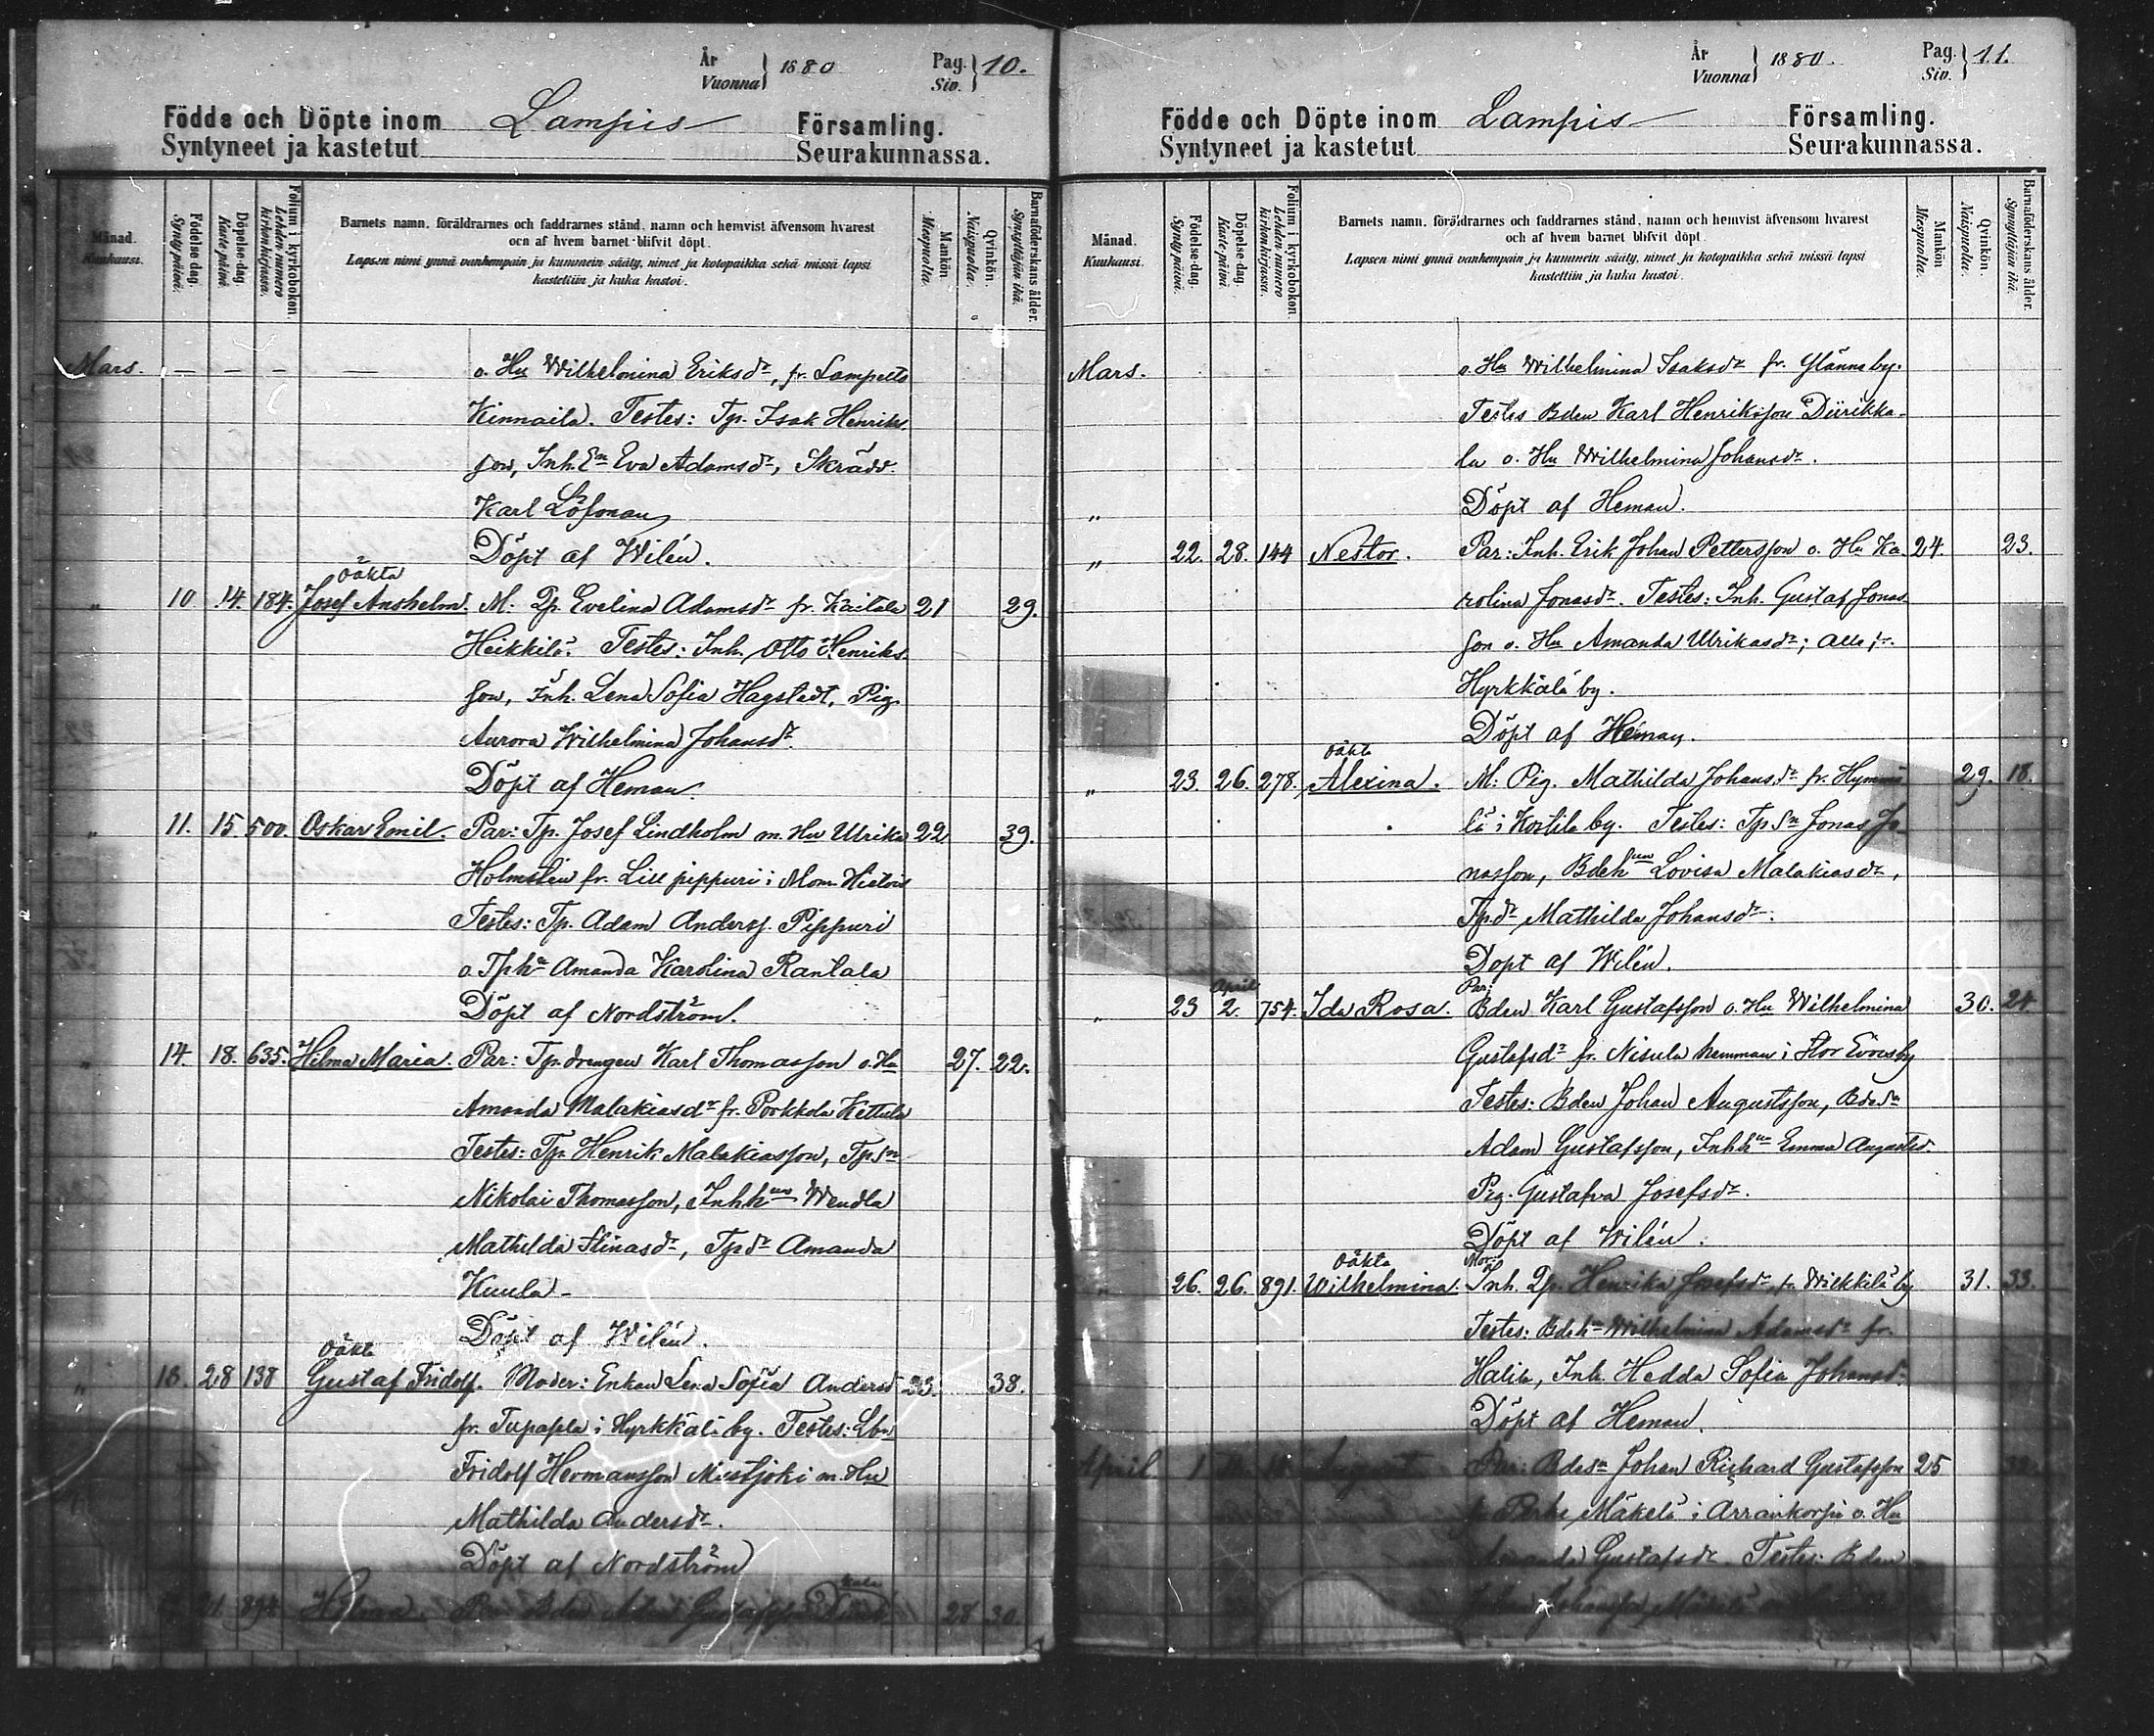 År
Vuonna } 1880
Pag.
Siv. } 10.
Födde och Döpte inom Lampis Församling.
Syntyneet ja kastetut Seurakunnassa.
Månad.
Kuukausi.
Födelse dag.
Syntypäivä.
Döpelse dag.
Kastepäivä.
Folium i kyrkoboken.
Lehden numero kirkonkirjassa.
Barnets namn, föräldrarnes och faddrarnes stånd, namn och hemvist äfvensom hvarest
och af hvem barnet blifvit döpt.
Lapsen nimi ynnä vanhempain ja kummein sääty, nimet ja kotopaikka sekä missä lapsi
kastettiin ja kuka kastoi.
Mankön.
Miespuolia.
Qvinkön.
Naispuolia.
Barnaföderskans ålder.
Synnyttäjän ikä.
Mars. — — — — o. Hu Wilhelmina Eriksdr, fr. Lampelto
Kinnaila. Testes: Tp. Isak Henriks
son, Inh. En Eva Adamsdr, Skrädd.
Karl Löfman
Döpt af Wilén.
oäkta
" 10 14. 184. Josef Anshelm. M: Qp. Evelina Adamsdr fr. Kaitala 21 29.
Heikkilä. Testes: Inh. Otto Henriks
son, Inh. Lena Sofia Hagstedt, Pig.
Aurora Wilhelmina Johansdr.
Döpt af Heman.
" 11. 15 500. Oskar Emil. Par: Tp. Josef Lindholm m. Hu Ulrika 22 39.
Holmstén fr. Lill pippuri i Mom. Hietois
Testes: Tp. Adam Anderss. Pippuri
o. Tphu Amanda Karolina Rantala
Döpt af Nordström.
" 14. 18. 635. Hilma Maria. Par: Tp. drengen Karl Thomasson o. Hu 27. 22.
Amanda Malakiasdr fr. Porkkola Kettula
Testes: Tp. Henrik Malakiasson, Tpsn
Nikolai Thomasson, Inhhun Wendla
Mathilda Stinasdr, Tpdr Amanda
Kuula.
Döpt af Wilén.
oäkta
" 18. 28 138 Gustaf Fridolf. Moder: Enkan Lena Sofia Andersd 23. 38.
fr. Tupapla i Hyrkkälä by. Testes: Lbn
Fridolf Hermansson Mustjoki m. Hu
Mathilda Andersdr.
Döpt af Nordström
21 894 Hilma. Par: Bden Gustafsson 28 30.
År
Vuonna } 1880.
Pag.
Siv. } 11.
Födde och Döpte inom Lampis Församling.
Syntyneet ja kastetut Seurakunnassa.
Månad.
Kuukausi.
Födelse dag.
Syntypäivä.
Döpelse dag.
Kastepäivä.
Folium i kyrkoboken.
Lehden numero kirkonkirjassa.
Barnets namn, föräldrarnes och faddrarnes stånd, namn och hemvist äfvensom hvarest
och af hvem barnet blifvit döpt.
Lapsen nimi ynnä vanhempain ja kummein sääty, nimet ja kotopaikka sekä missä lapsi
kastettiin ja kuka kastoi.
Mankön
Miespuolia.
Qvinkön.
Naispuolia.
Barnaföderskans ålder.
Synnyttäjän ikä.
Mars. o. Hu Wilhelmina Isaksdr fr. Ylänne by.
Testes Bden Karl Henriksson Diirikka-
la o. Hu Wilhelmina Johansdr.
" Döpt af Heman.
" 22. 28. 144 Nestor. Par: Inh. Erik Johan Pettersson o. Hu Ka- 24. 23.
rolina Jonasdr. Testes: Inh. Gustaf Jonas
son o. Hu Amanda Ulrikasdr; alla fr.
Hyrkkälä by.
Döpt af Heman.
oäkta
" 23. 26. 278. Alexina. M: Pig. Mathilda Johansdr fr. Hymmä 29. 18.
lä i Kostila by. Testes: Tpsn Jonas Jo
nasson, Bdehun Lovisa Malakiasdr,
Tpdr Mathilda Johansdr.
Döpt af Wilén.
April Par:
" 23 2. 754. Ida Rosa. Bden Karl Gustafsson o. Hu Wilhelmina 30. 24.
Gustafsdr fr. Nisula hemman i Stor Evois by
Testes: Bden Johan Augustsson, Bdesn
Adam Gustafsson, Inhhun Emma Augustsd.
Pig. Gustafva Josefsdr.
Döpt af Wilén.
oäkta Mor:
" 26. 26. 891. Wilhelmina. Inh. Qp. Henrika Josefsdr, fr. Wilkkilä by 31. 33.
Testes: Bdehn Wilhelmina Adamsdr fr.
Halila, Inh. Hedda Sofia Johansd.
Döpt af Heman.
April 1 August Par: Bdesn Johan Richard Gustafsson 25
fr. Mäkelä i Arrankorpi o. Hu
Amanda Gustafsdr. Testes: Bden
Johan Johansson Mäkelä